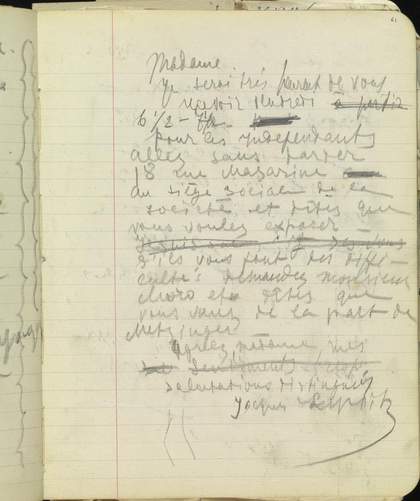 Madame
Je serai très heureux de vous
recevoir Vendredi à partir
6 1/2 - 7h
pour les Independants
allez sans tarder
18 rue Mazarine
du siège social de la
société et dites que
vous voulez exposer
s'ils vous font des diffi-
cultés demandez monsieur
et dites que
vous venez de la part de
Metzinger
Agréez madame mes
sentiments
salutations distinguées
Jacques Lipchitz